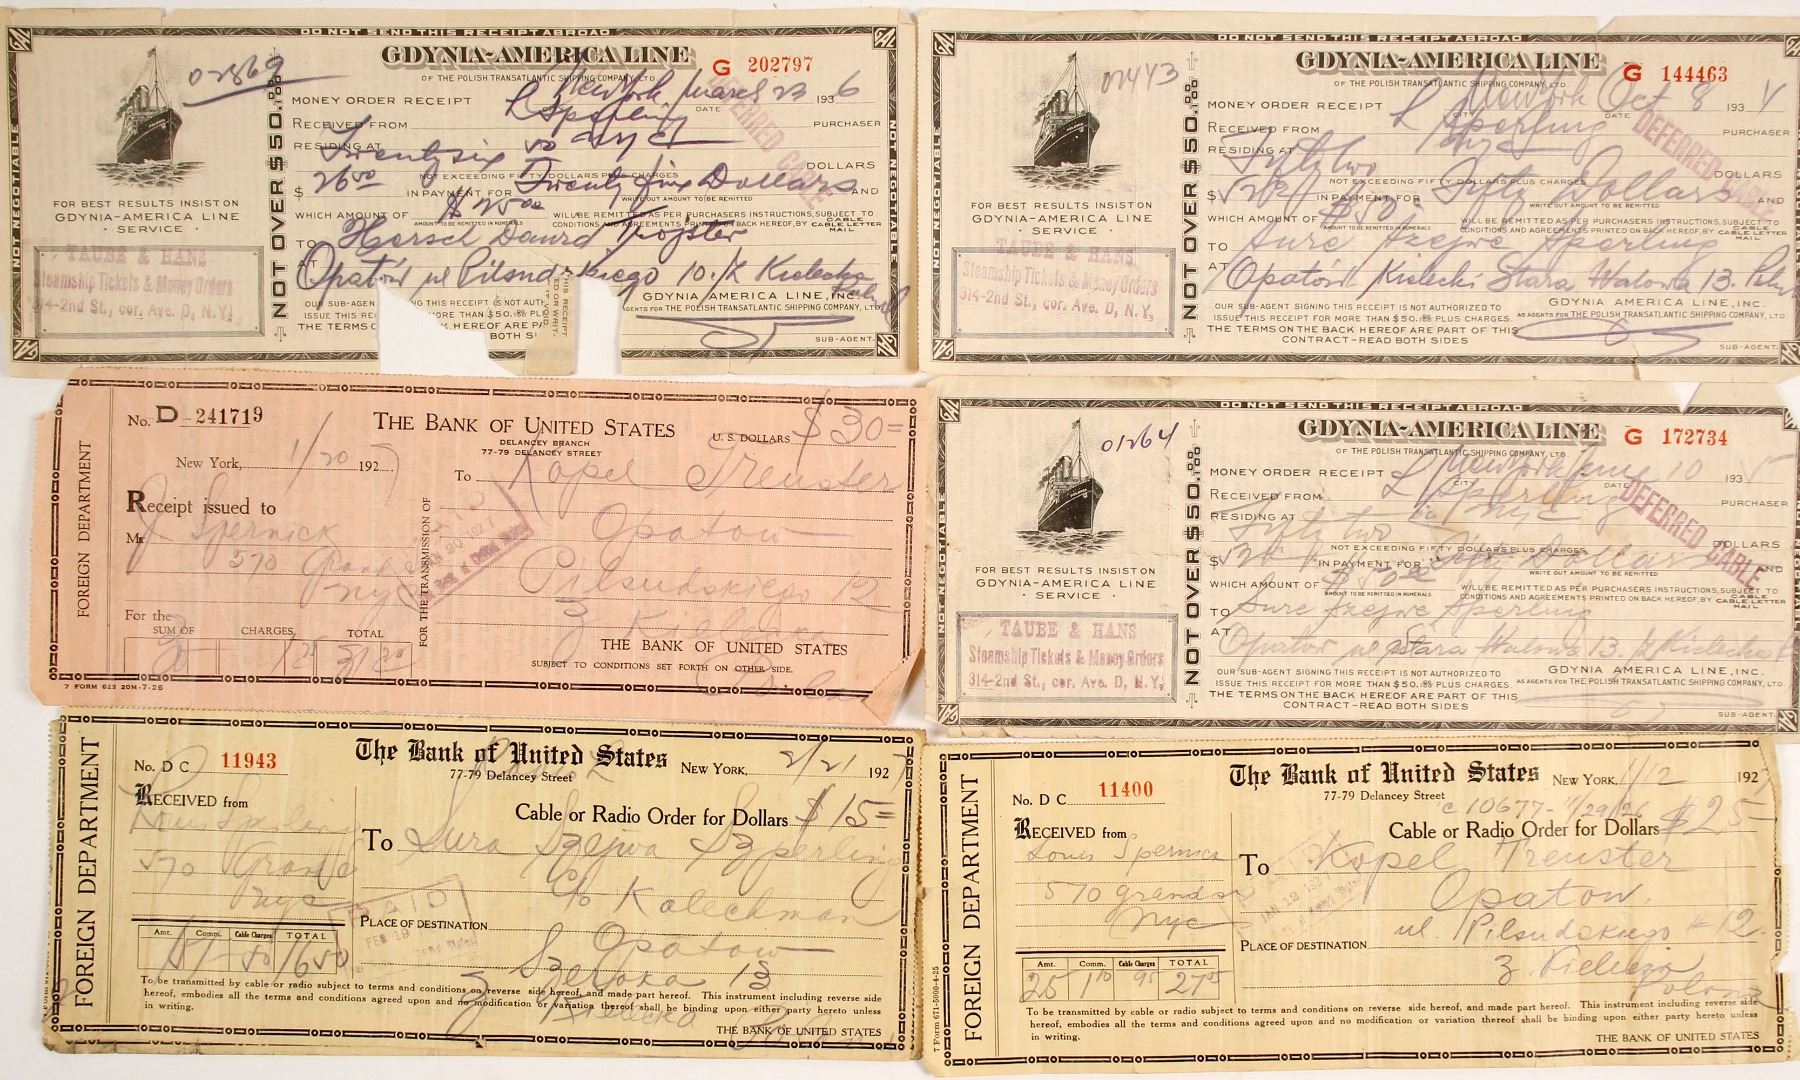 DO NOT SEND THIS RECEIPT ABROAD
GDYNIA-AMERICA LINE
OF THE POLISH TRANSATLANTIC SHIPPING COMPANY, LTD.
G 202797
02869
MONEY ORDER RECEIPT New York, March 23 1936
CITY DATE
RECEIVED FROM L Sperling PURCHASER
RESIDING AT nyc
Twenty six 00 DOLLARS
$ 26 00 NOT EXCEEDING FIFTY DOLLARS PLUS CHARGES
IN PAYMENT FOR Twenty five Dollars AND
WRITE OUT AMOUNT TO BE REMITTED
WHICH AMOUNT OF $ 25 00 WILL BE REMITTED AS PER PURCHASERS INSTRUCTIONS, SUBJECT TO
AMOUNT TO BE REMITTED IN NUMERALS CONDITIONS AND AGREEMENTS PRINTED ON BACK HEREOF, BY CABLE LETTER MAIL
TO Hersch Dawid
AT Opatów ul Pilsudskiego 10. Kielecka
GDYNIA AMERICA LINE, INC.
AGENTS FOR THE POLISH TRANSATLANTIC SHIPPING COMPANY, LTD.
SUB-AGENT.
OUR SUB-AGEN
ING THIS RECEIPT IS NOT AUT
ISSUE THIS REC
ORE THAN $50.00 PL
THE TERMS O
K HEREOF ARE PA
BOTH SI
NOT NEGOTIABLE
NOT OVER $50.00
NOT NEGOTIABLE
DEFERRED CABLE
FOR BEST RESULTS INSIST ON
GDYNIA-AMERICA LINE
· SERVICE ·
TAUBE & HANS
Steamship Tickets & Money Orders
314-2nd St., cor. Ave. D, N.Y.
DO NOT SEND THIS RECEIPT ABROAD
GDYNIA-AMERICA LINE
OF THE POLISH TRANSATLANTIC SHIPPING COMPANY, LTD.
G 144463
01443
MONEY ORDER RECEIPT New York Oct 8 193
CITY DATE
RECEIVED FROM L Sperling PURCHASER
RESIDING AT nyc
Fifty two DOLLARS
$ 52 NOT EXCEEDING FIFTY DOLLARS PLUS CHARGES
IN PAYMENT FOR Fifty Dollars AND
WRITE OUT AMOUNT TO BE REMITTED
WHICH AMOUNT OF $ 50 WILL BE REMITTED AS PER PURCHASERS INSTRUCTIONS, SUBJECT TO
AMOUNT TO BE REMITTED IN NUMERALS CONDITIONS AND AGREEMENTS PRINTED ON BACK HEREOF, BY CABLE LETTER MAIL
TO Sure Szejwe Sperling
AT Opatów Kielecki Stara Walowa 13.
OUR SUB-AGENT SIGNING THIS RECEIPT IS NOT AUTHORIZED TO
ISSUE THIS RECEIPT FOR MORE THAN $50.00 PLUS CHARGES.
THE TERMS ON THE BACK HEREOF ARE PART OF THIS
CONTRACT-READ BOTH SIDES
GDYNIA AMERICA LINE, INC.
AS AGENTS FOR THE POLISH TRANSATLANTIC SHIPPING COMPANY, LTD.
SUB-AGENT.
NOT NEGOTIABLE
NOT OVER $50.00
DEFERRED CABLE
FOR BEST RESULTS INSIST ON
GDYNIA-AMERICA LINE
· SERVICE ·
TAUBE & HANS
Steamship Tickets & Money Orders
314-2nd St., cor. Ave. D, N.Y.
FOREIGN DEPARTMENT
No. D-241719
THE BANK OF UNITED STATES
DELANCEY BRANCH
77-79 DELANCEY STREET
U.S. DOLLARS $30=
New York, 1/20 1927
To Kopel Treuster
Opatow
Pilsudskiego 12
z Kielecka
Receipt issued to
Mr. J Spernick
570 Grand
nyc
FOR THE TRANSMISSION OF
For the
SUM OF CHARGES TOTAL
30 1 25 31 25
THE BANK OF UNITED STATES
SUBJECT TO CONDITIONS SET FORTH ON OTHER SIDE.
7 FORM 623 20M-7-26
DO NOT SEND THIS RECEIPT ABROAD
GDYNIA-AMERICA LINE
OF THE POLISH TRANSATLANTIC SHIPPING COMPANY, LTD.
G 172734
01264
MONEY ORDER RECEIPT New York 10 193
CITY DATE
RECEIVED FROM L Sperling PURCHASER
RESIDING AT nyc
Fifty two DOLLARS
NOT EXCEEDING FIFTY DOLLARS PLUS CHARGES
IN PAYMENT FOR Dollars AND
WRITE OUT AMOUNT TO BE REMITTED
WHICH AMOUNT OF $50 00 WILL BE REMITTED AS PER PURCHASERS INSTRUCTIONS, SUBJECT TO
AMOUNT TO BE REMITTED IN NUMERALS CONDITIONS AND AGREEMENTS PRINTED ON BACK HEREOF, BY CABLE LETTER MAIL
TO Sure Szejwe Sperling
AT Opatow ul Stara Walowa 13. Kielecka
OUR SUB-AGENT SIGNING THIS RECEIPT IS NOT AUTHORIZED TO
ISSUE THIS RECEIPT FOR MORE THAN $50.00 PLUS CHARGES
THE TERMS ON THE BACK HEREOF ARE PART OF THIS
CONTRACT-READ BOTH SIDES
GDYNIA AMERICA LINE, INC.
AS AGENTS FOR THE POLISH TRANSATLANTIC SHIPPING COMPANY, LTD.
SUB-AGENT.
NOT NEGOTIABLE
NOT OVER $50.00
DEFERRED CABLE
FOR BEST RESULTS INSIST ON
GDYNIA-AMERICA LINE
· SERVICE ·
TAUBE & HANS
Steamship Tickets & Money Orders
314-2nd St., cor. Ave. D, N.Y.
FOREIGN DEPARTMENT
No. D C 11943
The Bank of United States
77-79 Delancey Street
NEW YORK, 2/21 1927
RECEIVED from
Louis Sperling
570 Grand
nyc
Cable or Radio Order for Dollars $15=
To Sura Szejwa Szperling
c/o Kalechman
PLACE OF DESTINATION Opatow
13
z Kielecka
PAID
FEB 19
Amt. Comm. Cable Charges TOTAL
15 1 50 16 50
To be transmitted by cable or radio subject to terms and conditions on reverse side hereof, and made part hereof. This instrument including reverse side
hereof, embodies all the terms and conditions agreed upon and no modification or variation thereof shall be binding upon either party hereto unless
in writing.
THE BANK OF UNITED STATES
FOREIGN DEPARTMENT
No. D C 11400
The Bank of United States
77-79 Delancey Street
NEW YORK, 1/12 1927
C 10677- 11/29/26
RECEIVED from
Louis Spernick
570 grand st
nyc
Cable or Radio Order for Dollars $25-
To Kopel Treuster
Opatow.
PLACE OF DESTINATION ul Pilsudskiego # 12.
z.
Poland
Amt. Comm. Cable Charges TOTAL
25 1 10 95 27 05
To be transmitted by cable or radio subject to terms and conditions on reverse side hereof, and made part hereof. This instrument including reverse side
hereof, embodies all the terms and conditions agreed upon and no modification or variation thereof shall be binding upon either party hereto unless
in writing.
THE BANK OF UNITED STATES
7 Form 671-5000-4-25